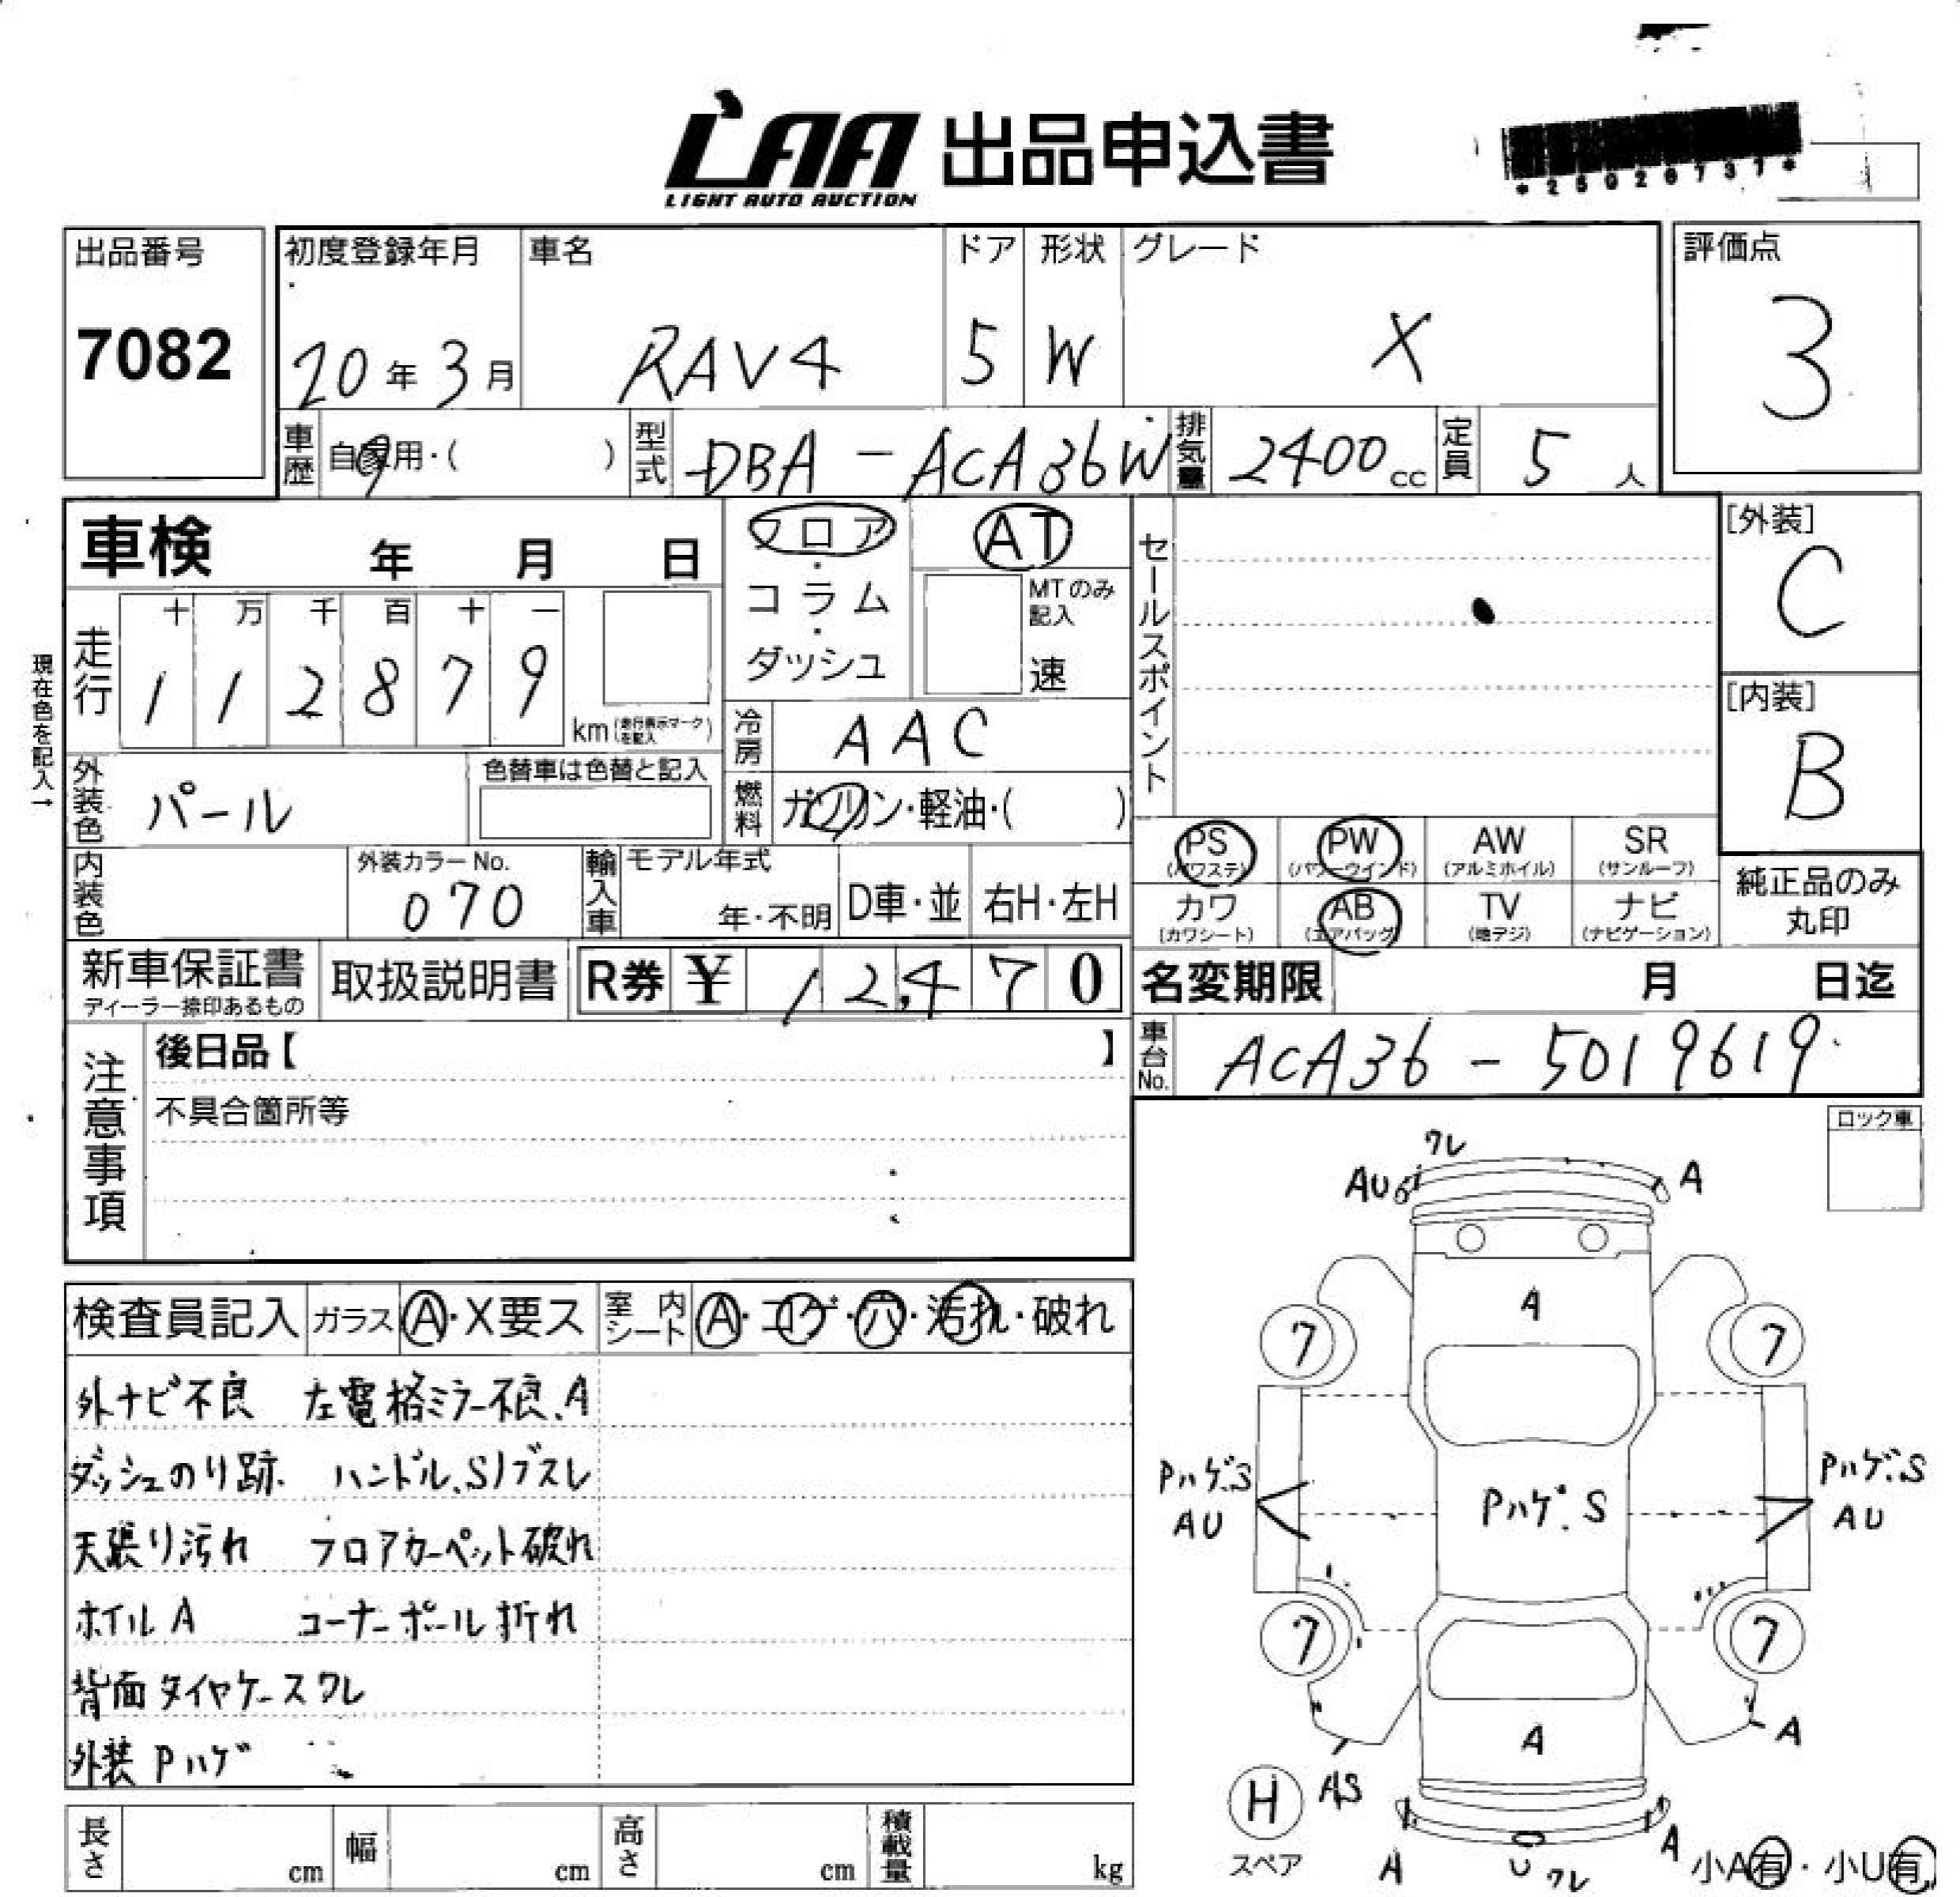 LAA 出品申込書
LIGHT AUTO AUCTION
*25026737*
出品番号
7082
初度登録年月 車名 ドア 形状 グレード
20年3月 RAV4 5 W X
評価点
3
車歴 自家用・( ) 型式 DBA-ACA36W 排気量 2400cc 定員 5人
車検 年 月 日
フロア・コラム・ダッシュ
AT
MTのみ記入
速
セールスポイント
[外装]
C
[内装]
B
現在色を記入→
走行 十 万 千 百 十 一
1 1 2 8 7 9
km(走行表示マークを記入)
冷房 AAC
外装色 パール
色替車は色替と記入
燃料 ガソリン・軽油・( )
PS PW AW SR
(パワステ) (パワーウインド) (アルミホイル) (サンルーフ)
カワ AB TV ナビ
(カワシート) (エアバッグ) (地デジ) (ナビゲーション)
純正品のみ
丸印
内装色
外装カラーNo.
070
輸入車 モデル年式
年・不明 D車・並 右H・左H
新車保証書 取扱説明書 R券 ¥ 12,470
ディーラー捺印あるもの
名変期限 月 日迄
車台No. ACA36-5019619
注意事項
後日品【 】
不具合箇所等
ロック車
検査員記入 ガラス A・X要ス 室内シート A・コゲ・穴・汚れ・破れ
外ナビ不良 左電格ミラー不良.A
ダッシュのり跡. ハンドル.Sノブスレ
天張り汚れ フロアカーペット破れ
ホイルA コーナーポール折れ
背面タイヤケースワレ
外装Pハゲ
ワレ
AU A
A
7 7
Pハゲ.S Pハゲ.S Pハゲ.S
AU AU
7 7
A A
H AS
スペア
A U ワレ A
小A有・小U有
長さ cm 幅 cm 高さ cm 積載量 kg